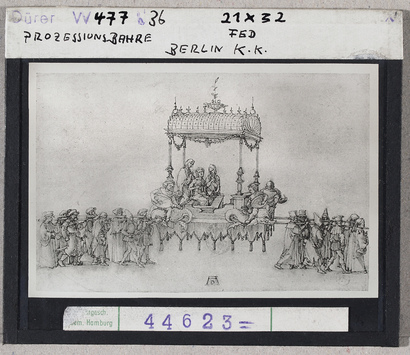 Dürer W 477 36 21 x 32
PROZESSIONSBAHRE FED
BERLIN K.K.
AD
Sem. Hamburg
44623=